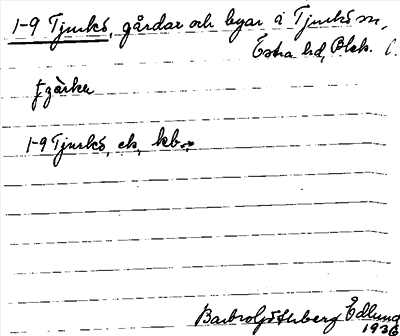 1-9 Tjurkö, gårdar och byar å Tjurkö sn,
Östra hd, Blek. l.
1-9 Tjurkö, ek, kb.
Edlund
1936